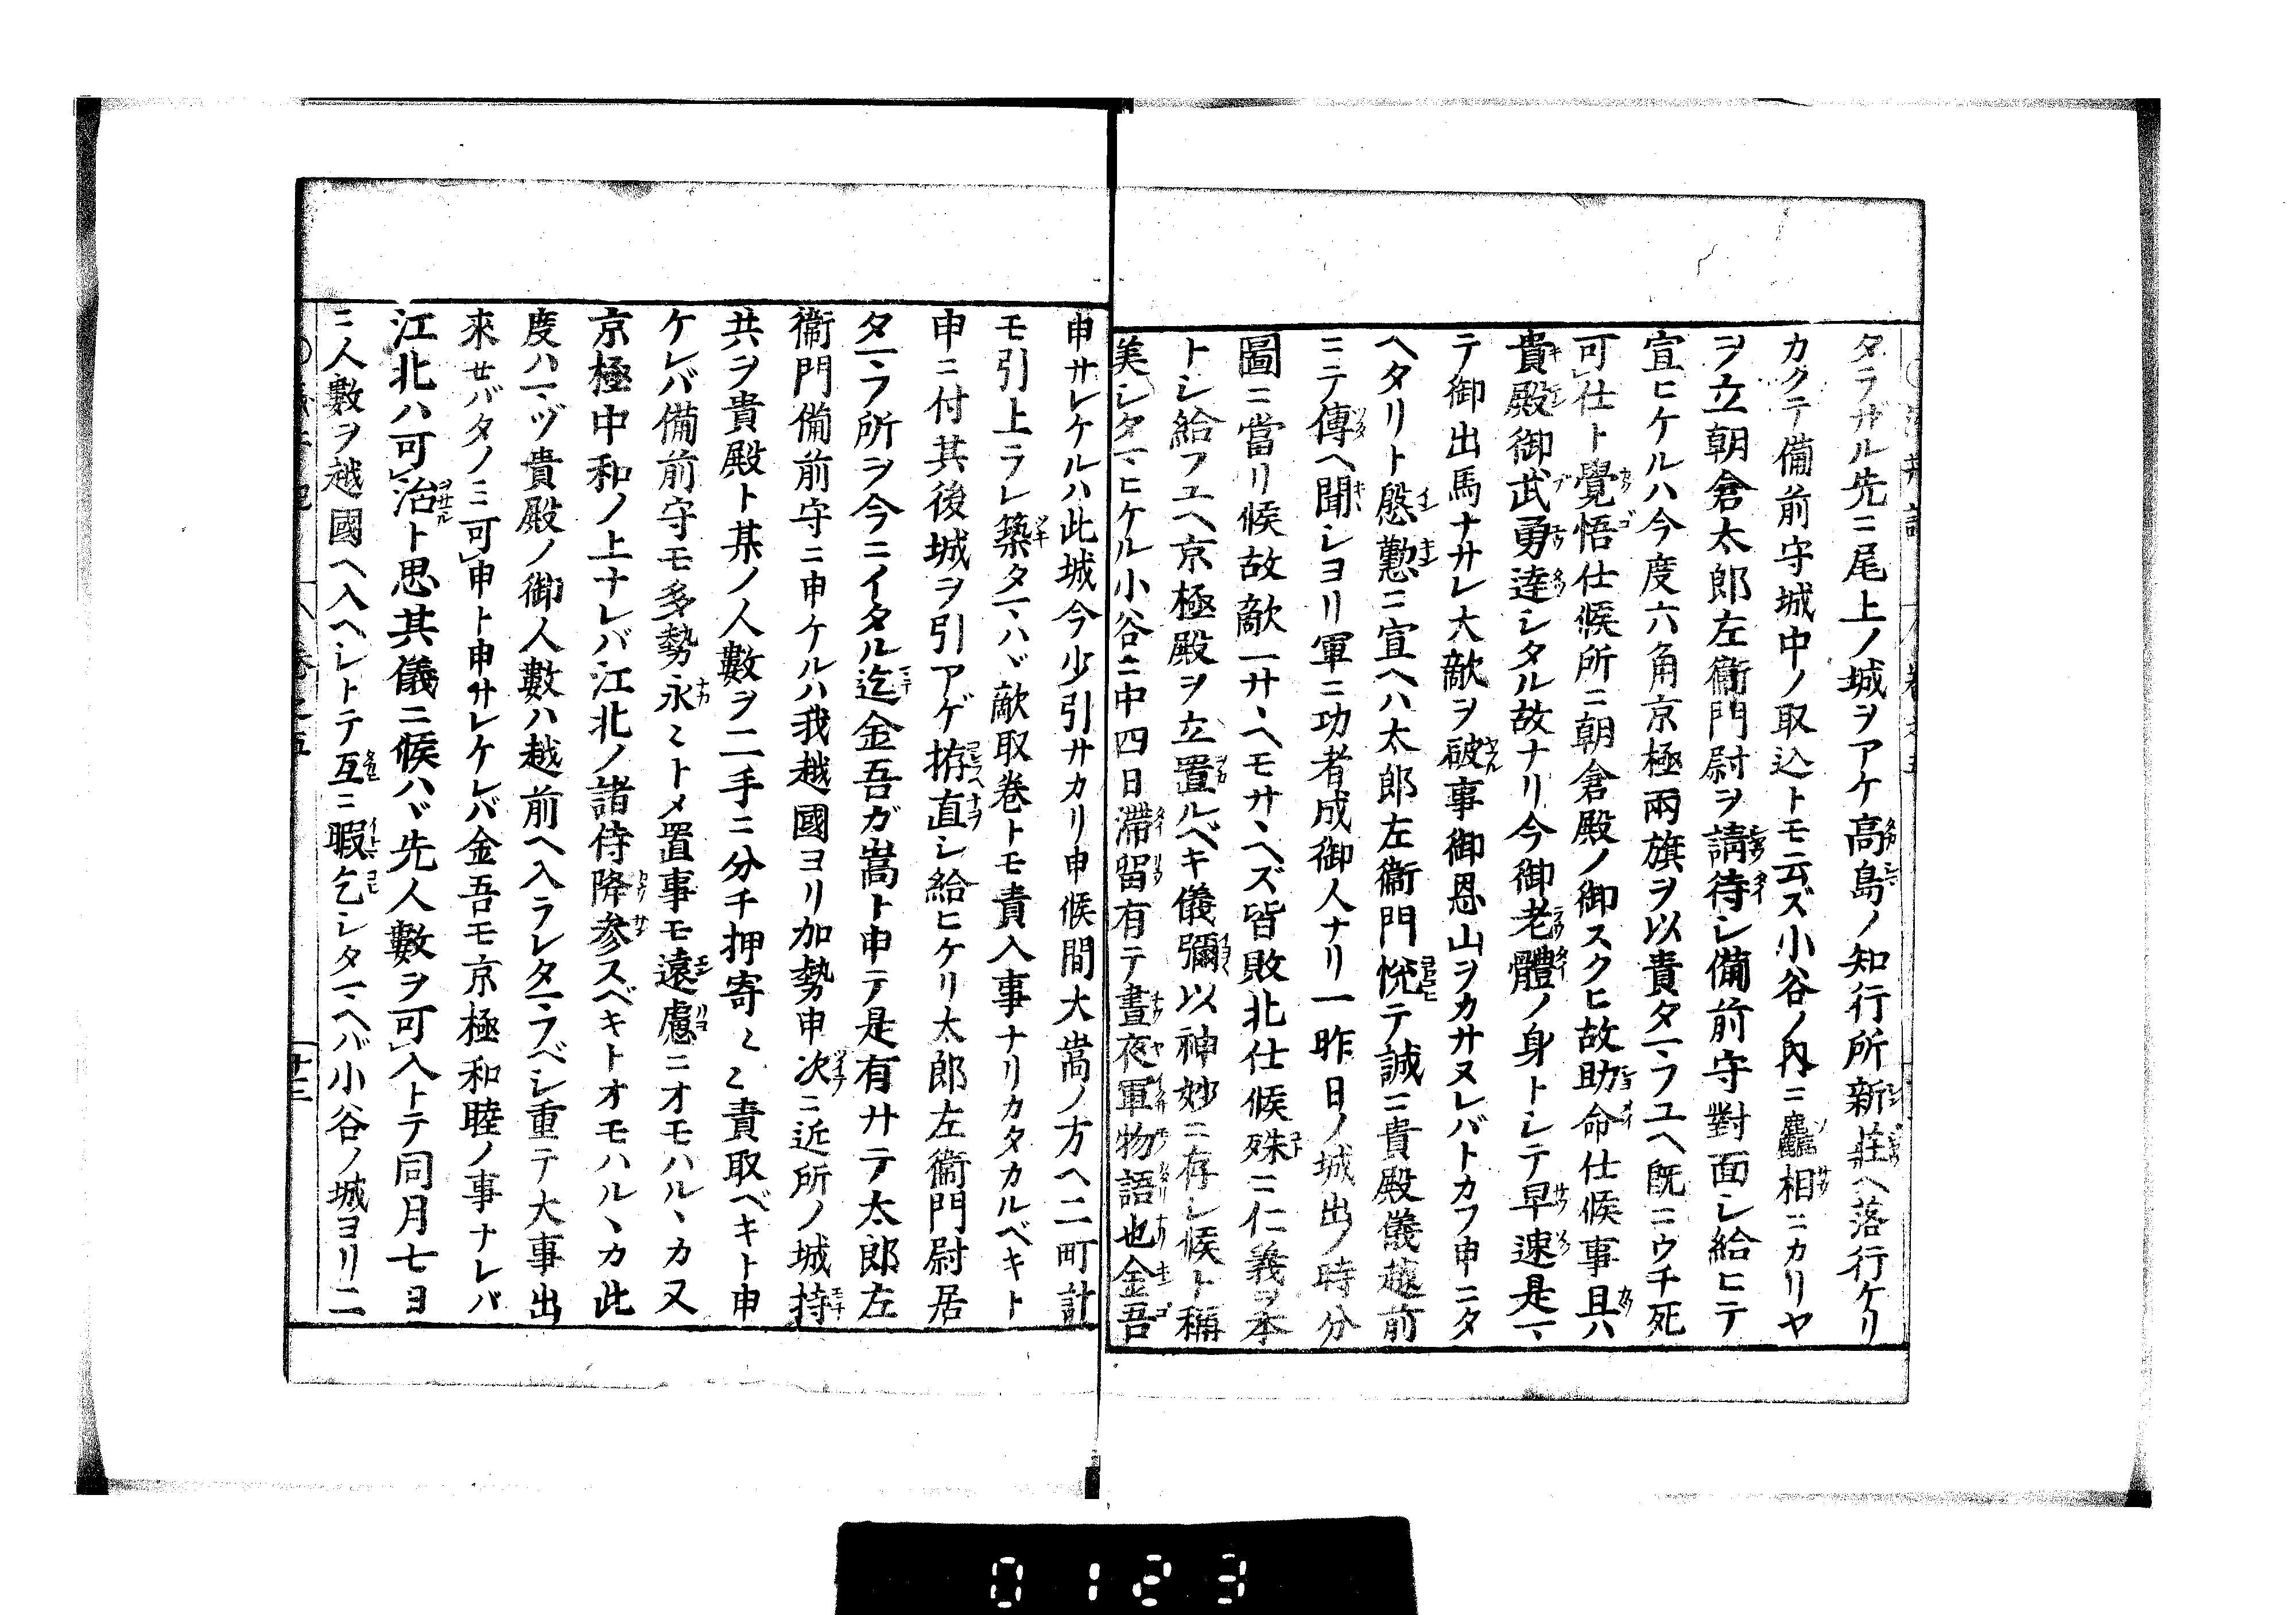 タラザル先ニ尾上ノ城ヲアケ高島ノ知行所新莊ヘ落行ケリ
カクテ備前守城中ノ取込トモ云ズ小谷ノ內ニ麤相ニカリヤ
ヲ立朝倉太郎左衞門尉ヲ請待シ備前守對面シ給ヒテ
宣ヒケルハ今度六角京極兩旗ヲ以責タマフユヘ既ニウチ死
可仕ト覺悟仕候所ニ朝倉殿ノ御スクヒ故助命仕候事且ハ
貴殿御武勇達シタル故ナリ今御老體ノ身トシテ早速是マ
テ御出馬ナサレ大敵ヲ破事御恩山ヲカサヌレバトカフ申ニタ
ヘタリト慇懃ニ宣ヘハ太郎左衞門悅テ誠ニ貴殿儀越前
ニテ傳ヘ聞シヨリ軍ニ功者成御人ナリ一昨日ノ城出ノ時分
圖ニ當リ候故敵一サヽヘモサヽヘズ皆敗北仕候殊ニ仁義ヲ本
トシ給フユヘ京極殿ヲ立置ルベキ儀彌以神妙ニ存シ候ト稱
美シタマヒケル小谷ニ中四日滯留有テ晝夜軍物語也金吾
申サレケルハ此城今少引サカリ申候間大嵩ノ方ヘ二町計
モ引上ラレ築タマハヾ敵取卷トモ責入事ナリカタカルベキト
申ニ付其後城ヲ引アゲ拵直シ給ヒケリ太郎左衞門尉居
タマフ所ヲ今ニイタル迄金吾ガ嵩ト申テ是有サテ太郎左
衞門備前守ニ申ケルハ我越國ヨリ加勢申次ニ近所ノ城持
共ヲ貴殿ト某ノ人數ヲ二手ニ分チ押寄〻〻責取ベキト申
ケレバ備前守モ多勢永〻トメ置事モ遠慮ニオモハルヽカ又
京極中和ノ上ナレバ江北ノ諸侍降參スベキトオモハルヽカ此
度ハマヅ貴殿ノ御人數ハ越前ヘ入ラレタマフベシ重テ大事出
來セバタノミ可申ト申サレケレバ金吾モ京極和睦ノ事ナレバ
江北ハ可治ト思其儀ニ候ハヾ先人數ヲ可入トテ同月七ヨ
ニ人數ヲ越國ヘ入ヘシトテ互ニ暇乞シタマヘバ小谷ノ城ヨリ二
卷之五
廿三
0123